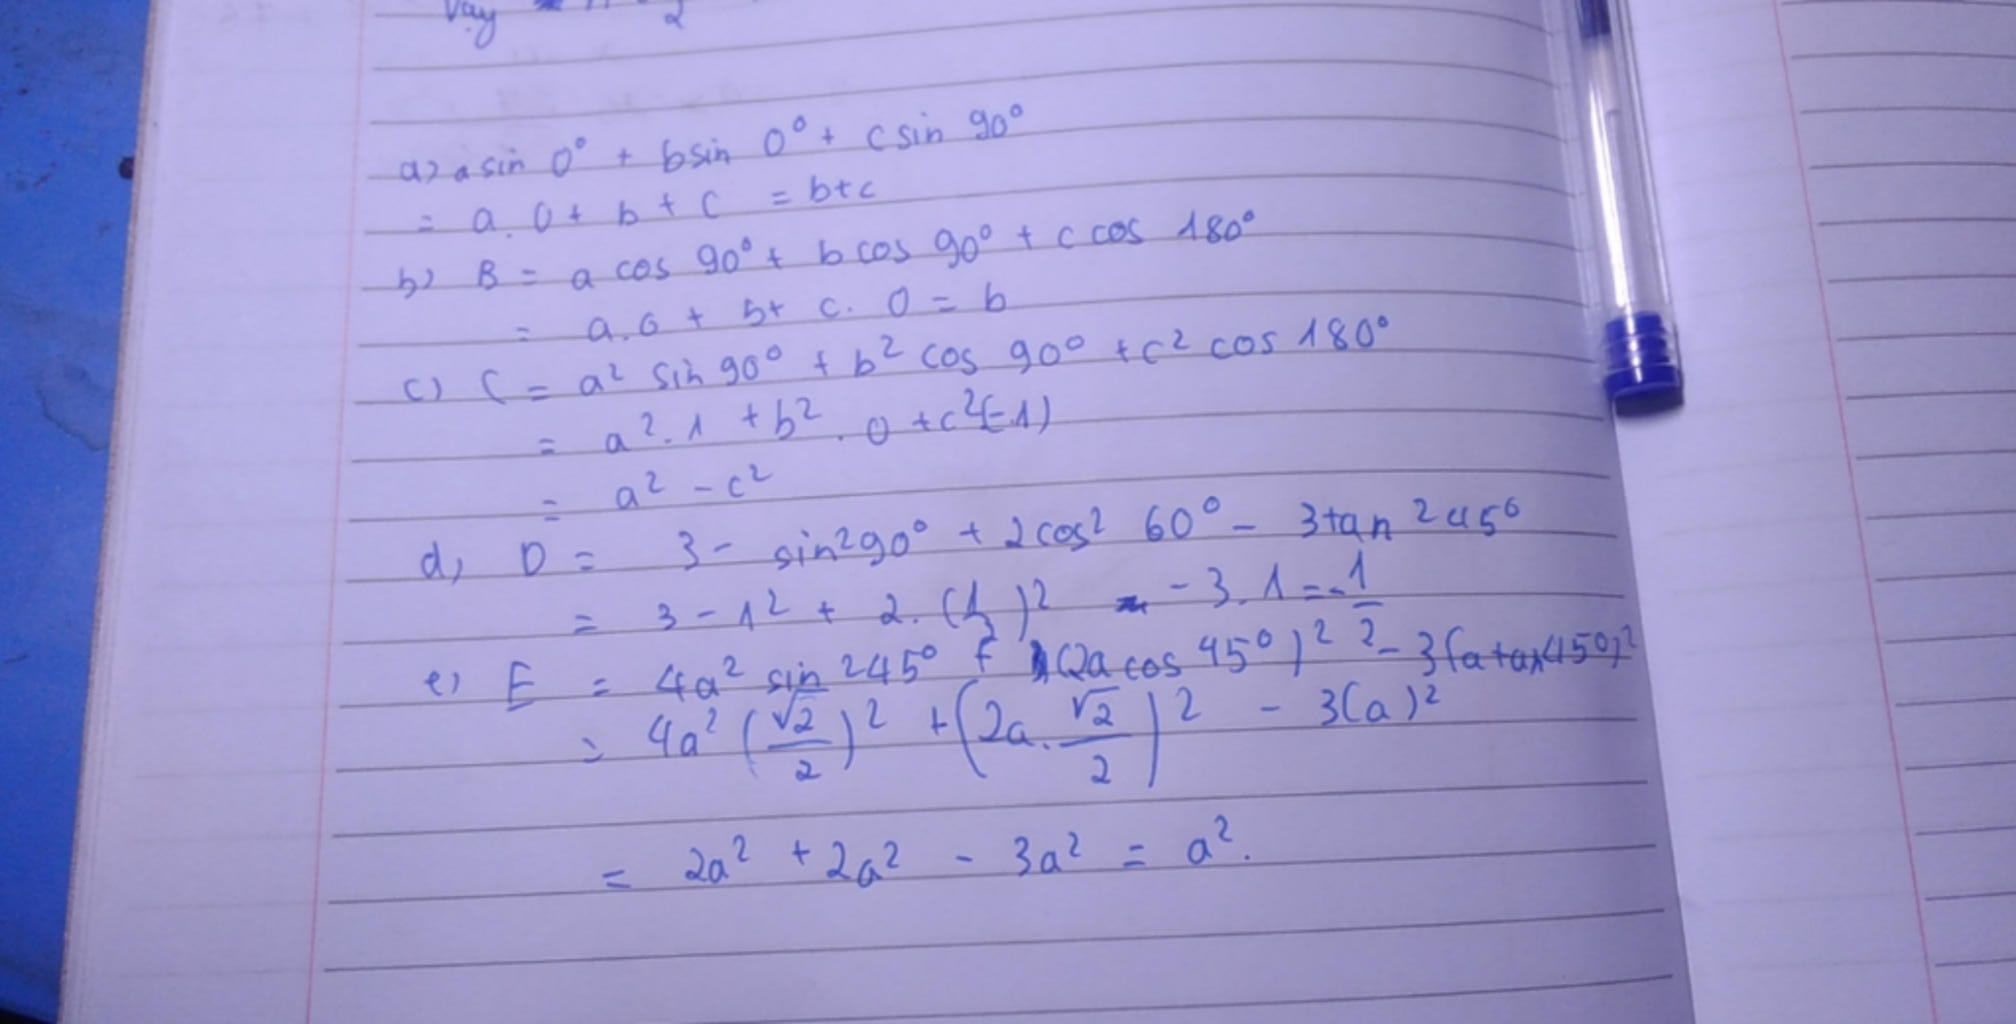 Vậy
2
a) a sin 0° + b sin 0° + c sin 90°
= a. 0 + b + c = b+c
b) B = a cos 90° + b cos 90° + c cos 180°
= a.0 + b+ c. 0 = b
c) C = a² sin 90° + b² cos 90° + c² cos 180°
= a². 1 + b² . 0 + c²(-1)
= a² - c²
d, D = 3 - sin²90° + 2cos² 60° - 3tan²45°
= 3 - 1² + 2. (1/2)² - 3. 1 = -1/2
e) E = 4a² sin²45° + (2a cos 45°)² - 3(a tan45°)²
= 4a² (√2/2)² + (2a. √2/2)² - 3(a)²
= 2a² + 2a² - 3a² = a².